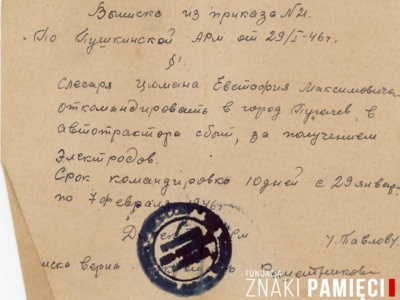 Выписка из приказа №21.
По Пушкинской АРМ от 29/I-46 г.
§1.
Слесаря Цюмана Евстафия Максимовича
откомандировать в город Пугачев, в
автотрактора сбыт, за получением
Электродов.
Срок командировка 10 дней с 29 январ
по 7 февраля 1946 г.
У. Павлову.
верна
FUNDACJA
ZNAKI PAMIĘCI